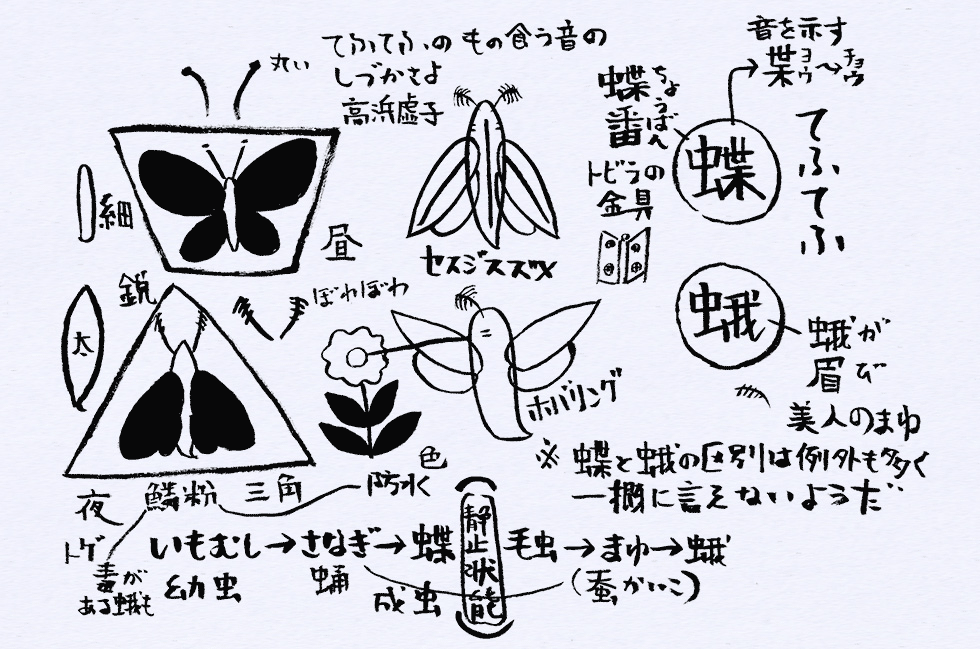 てふてふの もの食う音の
しづかさよ
高浜虚子
丸い
細
昼
鋭
太
ぼわぼわ
夜
鱗粉
三角
色
防水
トゲ
毒が
ある蛾も
セスジスズメ
ホバリング
音を示す
枼 ヨウ→チョウ
蝶番
ちょうばん
トビラの
金具
蝶
てふてふ
蛾
蛾が
眉び
美人のまゆ
※ 蝶と蛾の区別は例外も多く
一概に言えないようだ
いもむし→さなぎ→蝶
幼虫
蛹
成虫
静止状態
毛虫→まゆ→蛾
(蚕かいこ)